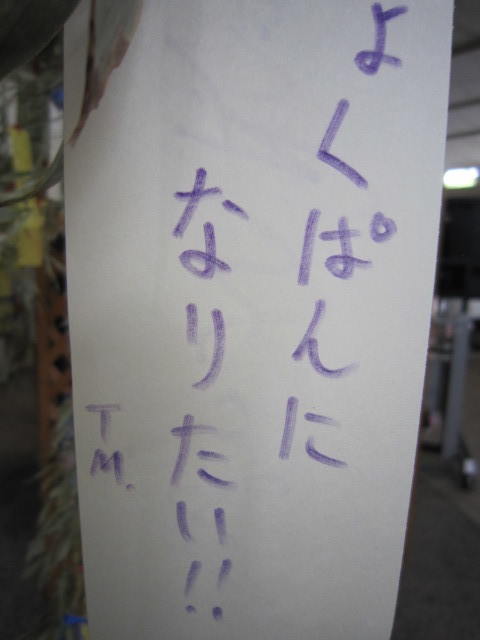 よくぱんに
なりたい!!
T
M.